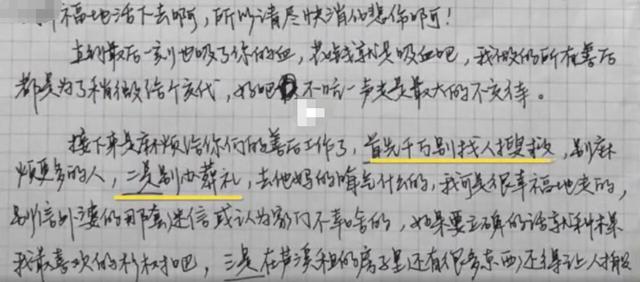 幸福地活下去啊，所以请尽快消化悲伤啊！
直到最后一刻也吸了你们的血，花钱就是吸血吧，我做的所有善后
都是为了稍微给个交代，好吧 不吭一声走是最大的不交待。
接下来是麻烦给你们的善后工作了，首先千万别找人搜救，别麻
烦更多的人，二是别办葬礼，去他妈的晦气什么的，我可是很幸福地走的，
别信外婆的那套迷信或认为家门不幸啥的，如果要立碑的话就种棵
我最喜欢的杉树吧，三是在芦溪租的房子里还有很多东西还得让人搬